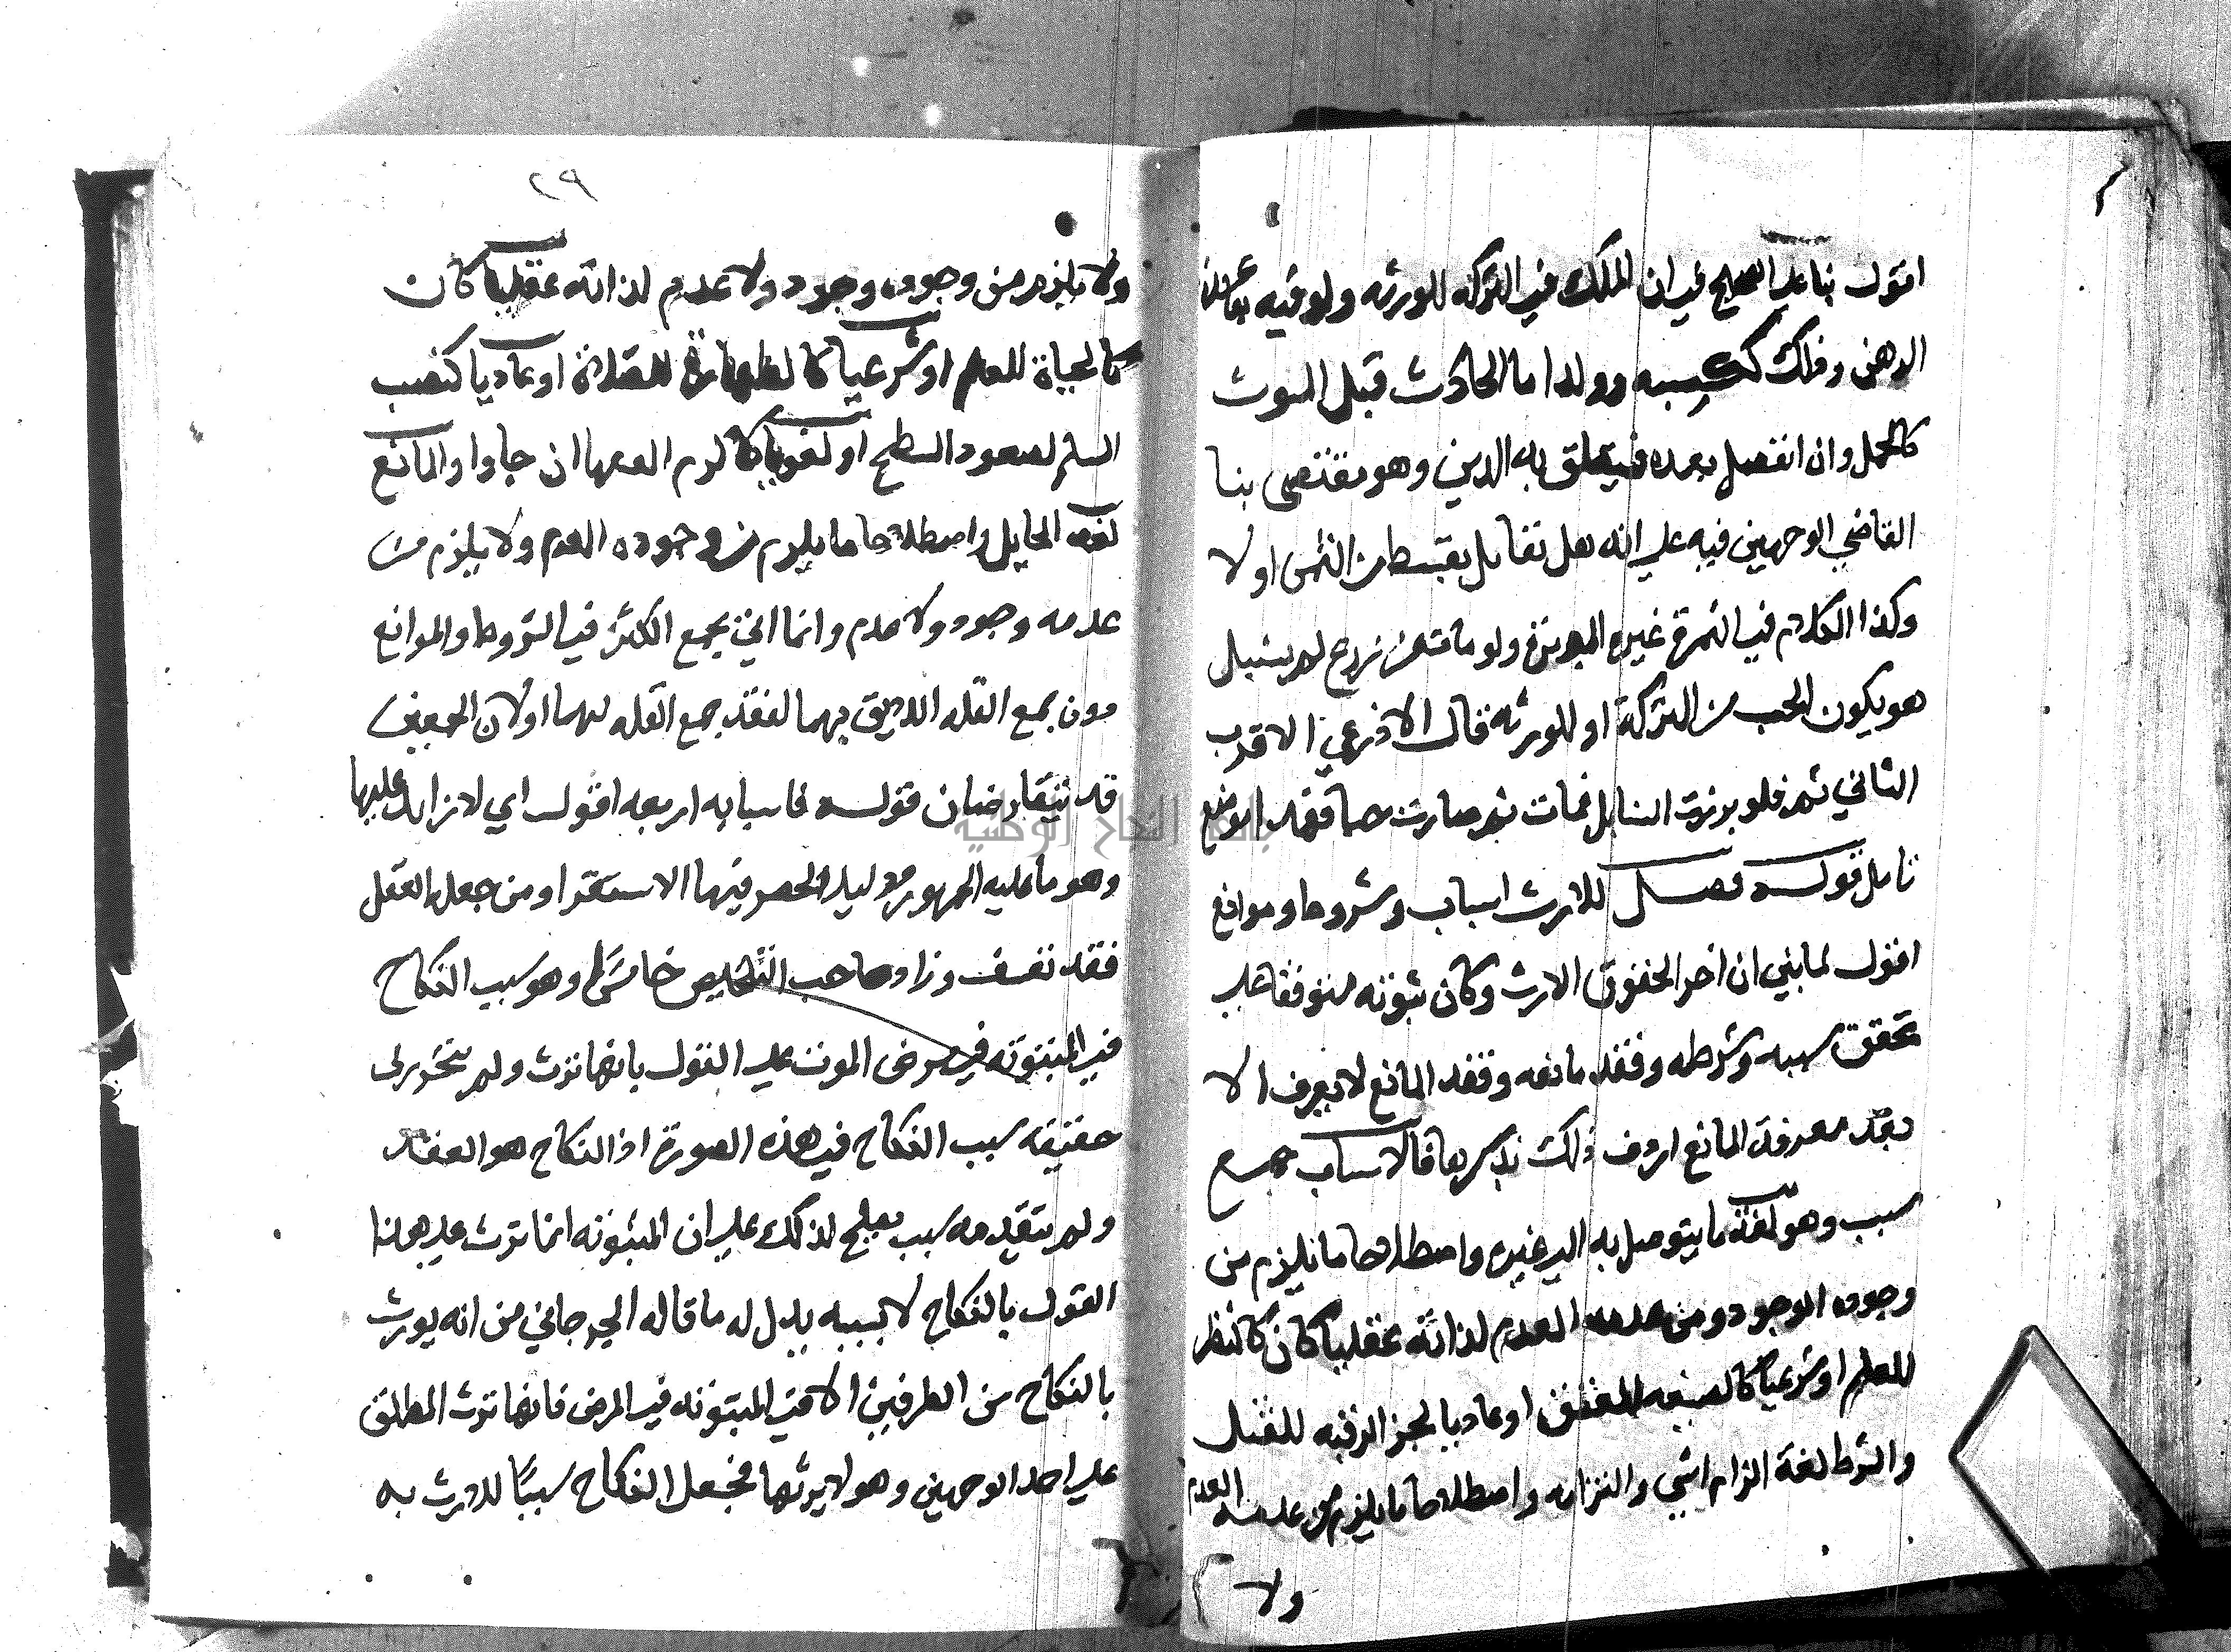 اقول بنا علي الصحيح في ان الملك في التركه للورثه ولو فيه
الدهن وذلك ككسبه وولد اما الحادث قبل الموت
كالحمل وان انفصل بعده فيتعلق به الدين وهو مقتضى بنا
القاضي الوجهين فيه علي انه هل تقابل بقسط من الثمن او لا
وكذا الكلام في الثمرة غير ولو مات عن زرع لم يسبل
هو يكون الحب من التركة او للورثه قال الاذرعي الاقرب
الثاني ثم فلو برزت السنابل فمات ثم صارت حبا فهذه
تامل قوله فصل للارث اسباب وشروط وموانع
اقول لما بني ان اخر الحقوق الارث وكان ثبوته متوقفا علي
تحقق سببه وشرطه وفقد مانعه وفقد المانع لا يعرف الا
بعد معرفة المانع اردف ذلك بذكرها فالاسباب جمع
سبب وهو لغة ما يتوصل به الي غيره واصطلاحا ما يلزم من
وجوده الوجود ومن عدمه العدم لذاته عقليا كان كالنظر
للعلم او شرعيا كالصيغه للعتق او عاديا لحز الرقبه للقتل
والشرط لغة الزام الشي والتزامه واصطلاحا ما يلزم من عدمه العدم
ولا
٢٩
ولا يلزم من وجوده وجود ولا عدم لذاته عقليا كان
كالحياة للعلم او شرعيا كالطهارة للصلاة او عاديا كنصب
السلم لصعود السطح او لغويا كاكرم الفقها ان جاوا والمانع
لغة الحايل واصطلاحا ما يلزم من وجوده العدم ولا يلزم من
عدمه وجود ولا عدم وانما اتي بجمع الكثرة في الشروط والموانع
دون جمع القله اللايق بهما لفقد جمع القله لهما او لان الجمعين
قد يتقارضان قوله فاسبابه اربعه اقول اي لا زايد عليها
وهو ما عليه الجمهور ودليل الحصر فيها الاستقرا ومن جعله العقل
فقد تعسف وزاد صاحب التلخيص خامسا وهو سبب النكاح
في المبتوته في مرض الموت علي القول بانها ترث ولم يتحرر لي
حقيقه سبب النكاح في هذه الصورة اذ النكاح هو العقد
ولم يتقدمه سبب يصلح لذلك علي ان المبتوته انما ترث علي هذا
القول بالنكاح لا بسببه يدل له ما قاله الجرجاني من انه يورث
بالنكاح من الطرفين الا في المبتوته في المرض فانها ترث المطلق
علي احد الوجهين وهو لا يرثها فجعل النكاح سببا للارث به